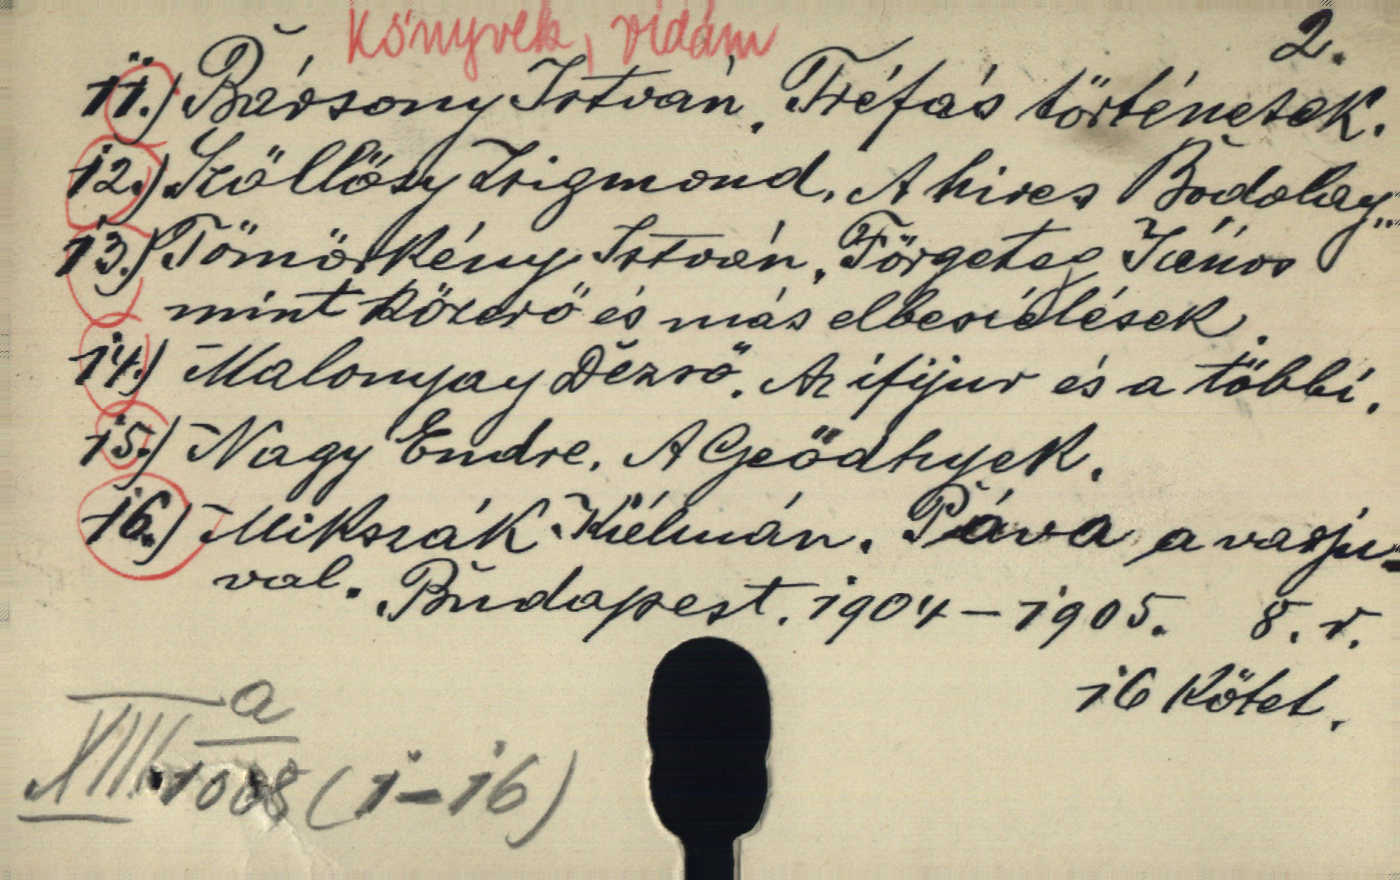 Könyvek, vidám
2.
11.) Bársony István. Tréfás történetek.
12.) Szöllösy Zsigmond. A hires Bodolay.
13.) Tömörkény István. Förgeteg János
mint közerö és más elbeszélések.
14.) Malonyay Dezsö. Az ifijur és a többi.
15.) Nagy Endre. A Geöáhyek.
16.) Mikszák Kálmán. Páva a varju-
val. Budapest. 1904–1905. 8. r.
16 kötet.
a
XIII. 1088 (1–16)